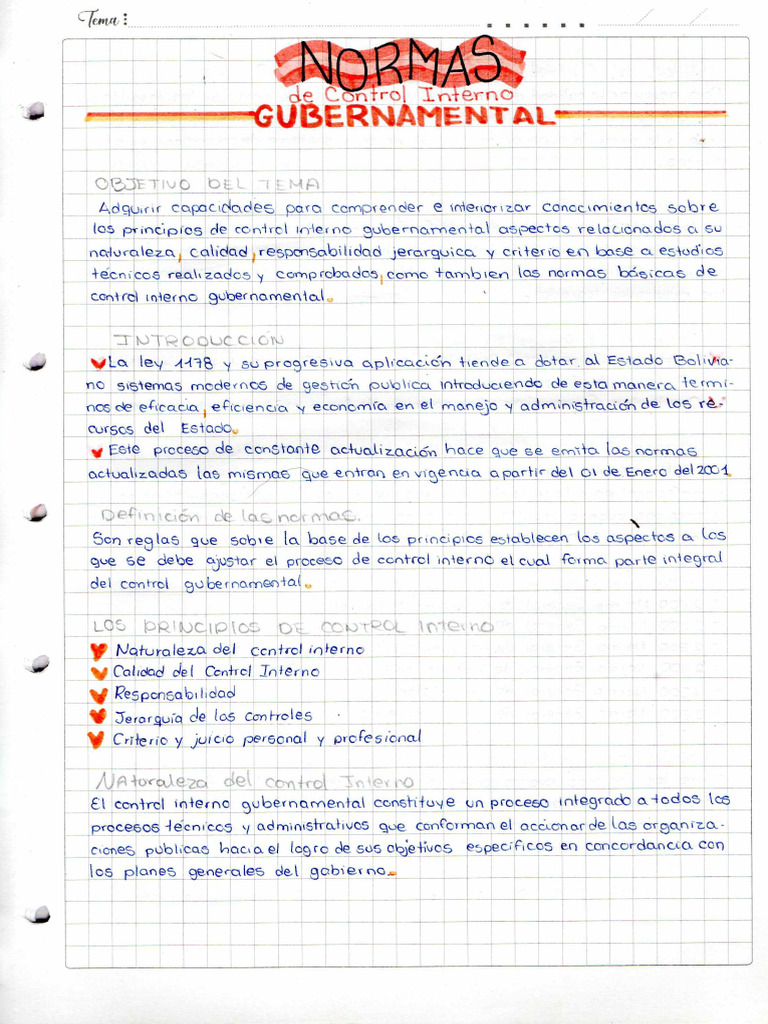 Tema:
NORMAS
de Control Interno
GUBERNAMENTAL
OBJETIVO DEL TEMA
Adquirir capacidades para comprender e interiorizar conocimientos sobre
los principios de control interno gubernamental aspectos relacionados a su
naturaleza, calidad, responsabilidad jerarquica y criterio en base a estudios
técnicos realizados y comprobados, como tambien las normas básicas de
control interno gubernamental.
INTRODUCCIÓN
La ley 1178 y su progresiva aplicación tiende a dotar al Estado Bolivia-
no sistemas modernos de gestión publica introduciendo de esta manera termi-
nos de eficacia, eficiencia y economía en el manejo y administración de los re-
cursos del Estado.
Este proceso de constante actualización hace que se emita las normas
actualizadas las mismas que entran en vigencia a partir del 01 de Enero del 2001
Definición de las normas.
Son reglas que sobre la base de los principios establecen los aspectos a los
que se debe ajustar el proceso de control interno el cual forma parte integral
del control gubernamental.
LOS PRINCIPIOS DE CONTROL Interno
Naturaleza del control interno
Calidad del Control Interno
Responsabilidad
Jerarquía de los controles
Criterio y juicio personal y profesional
NAturaleza del control Interno
El control interno gubernamental constituye un proceso integrado a todos los
procesos técnicos y administrativos que conforman el accionar de las organiza-
ciones publicas hacia el logro de sus objetivos especificos en concordancia con
los planes generales del gobierno.